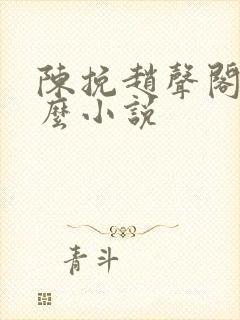 陳挽趙聲閣
麼小説
青斗